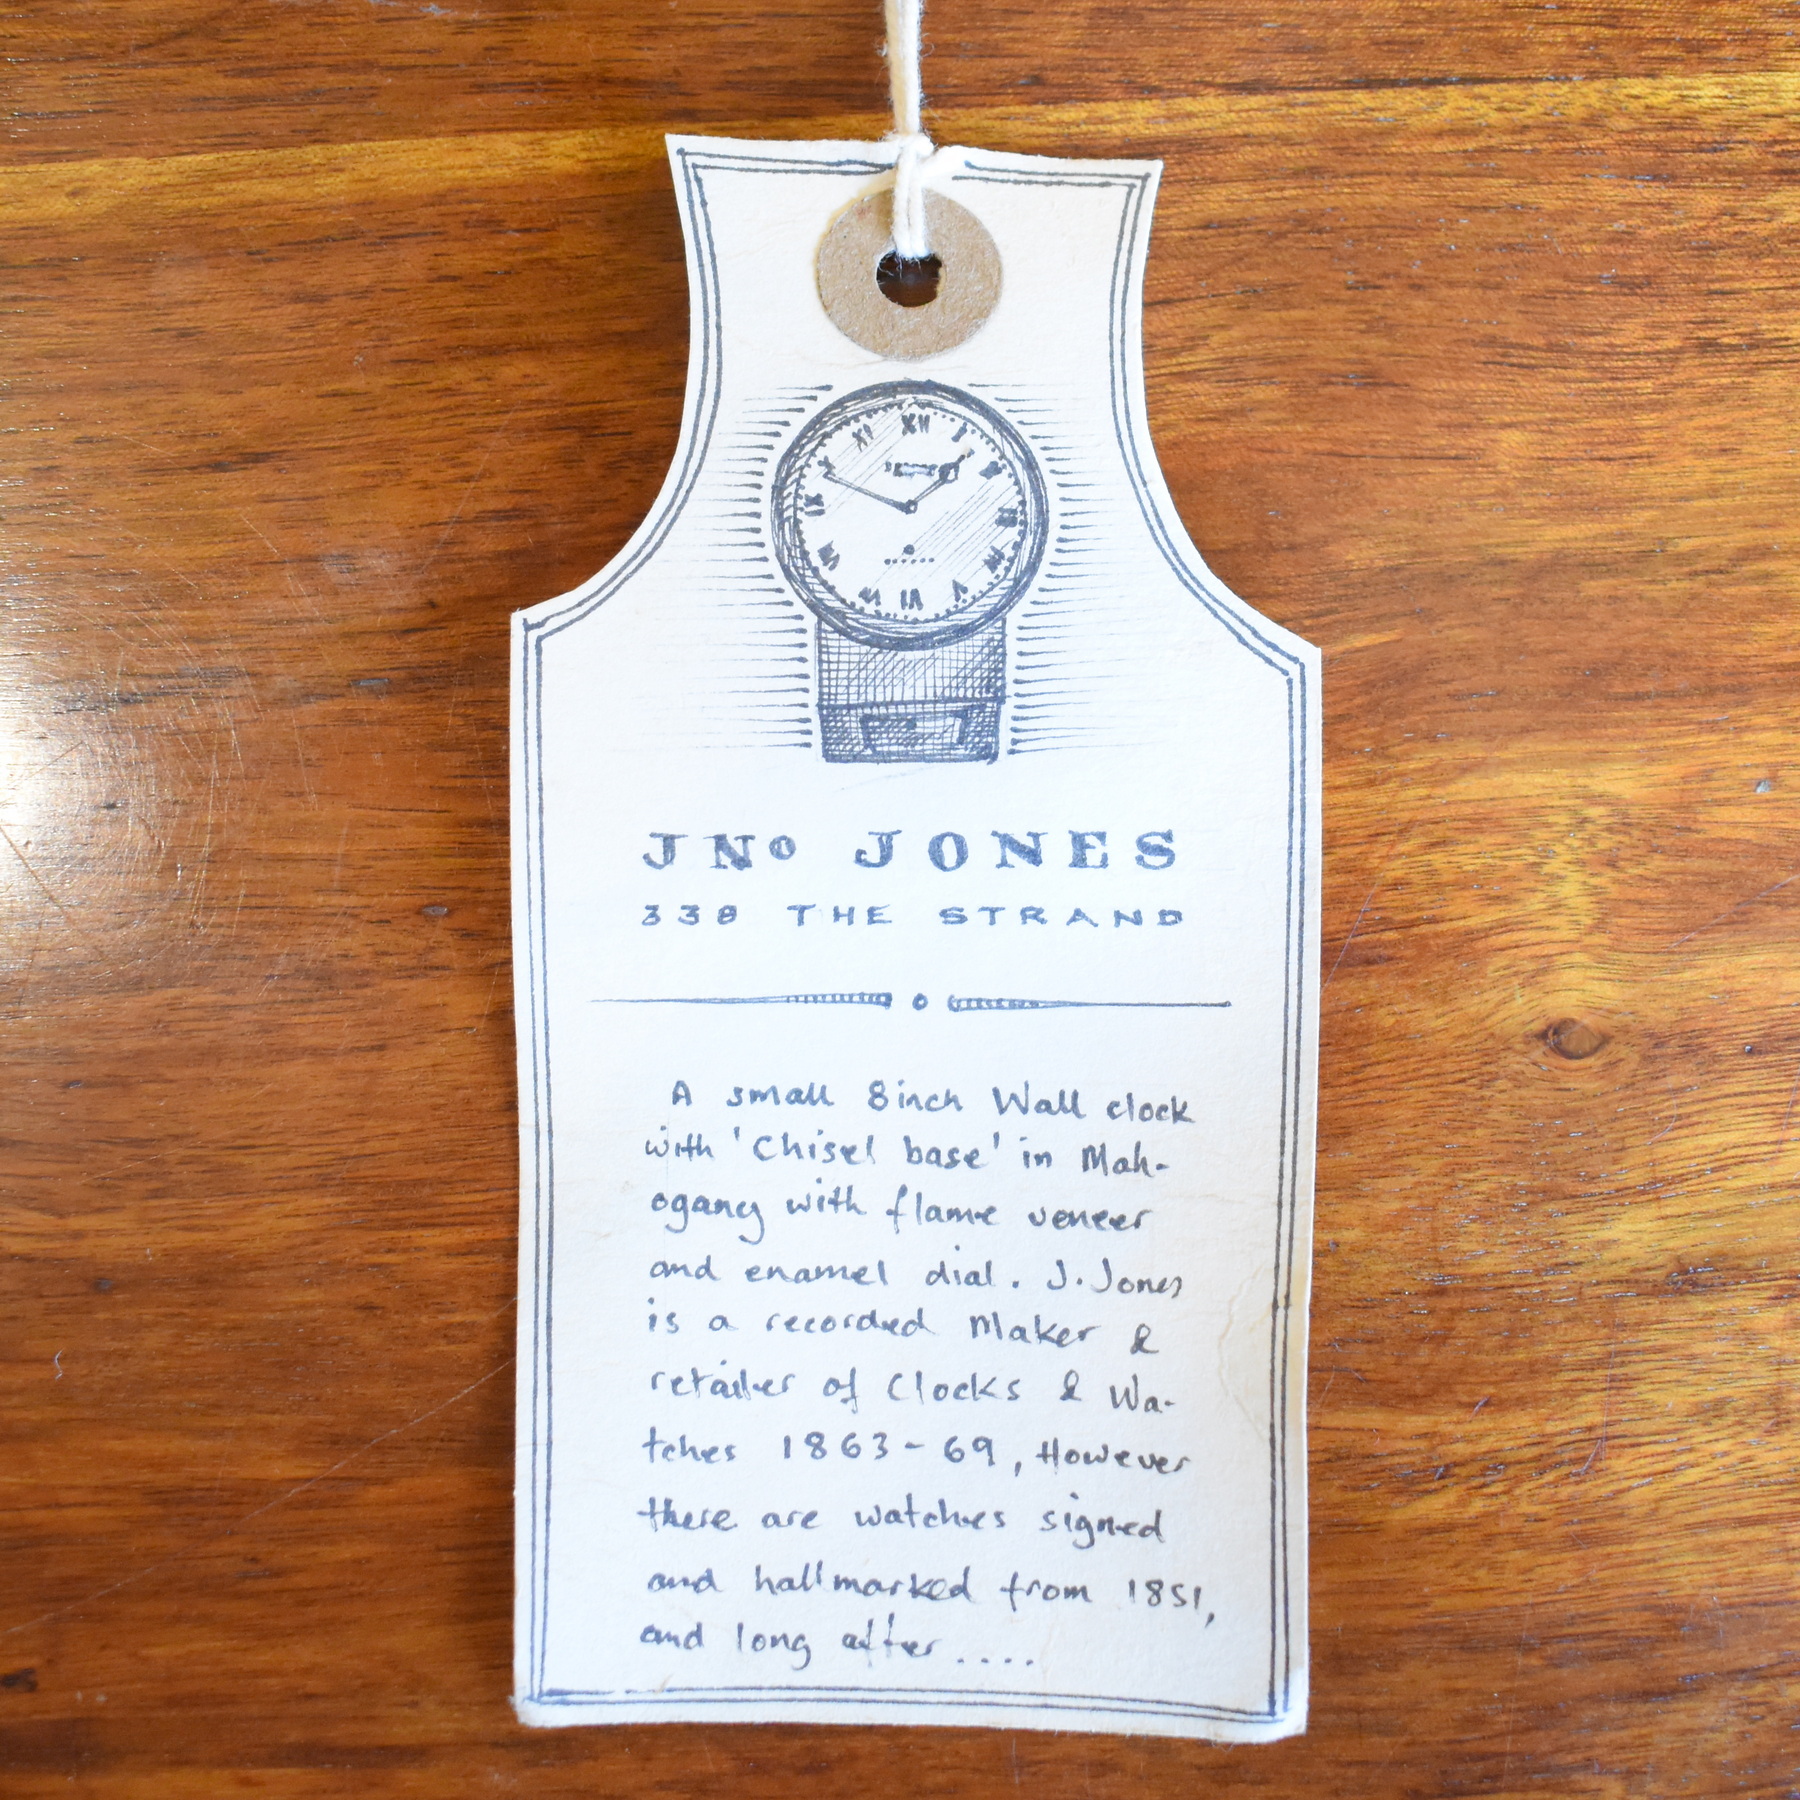 JNo JONES
338 THE STRAND
A small 8inch Wall clock
with 'Chisel base' in Mah-
ogany with flame veneer
and enamel dial. J. Jones
is a recorded Maker &
retailer of Clocks & Wa-
tches 1863-69, However
there are watches signed
and hallmarked from 1851,
and long after....